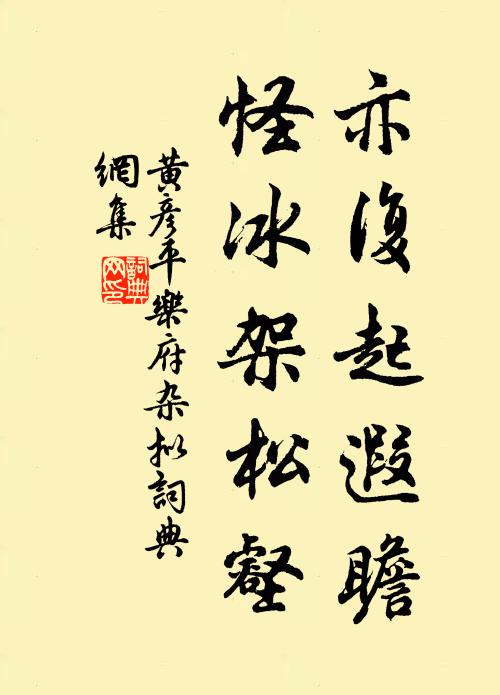 亦復起遐瞻
怪冰架松壑
黃彥平樂府杂拟詞典
網集
詞典
网印